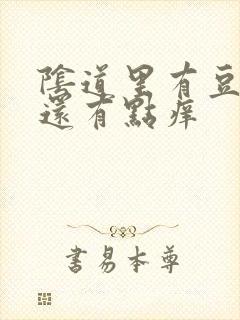 陰道里有豆
還有點痒
書易本尊